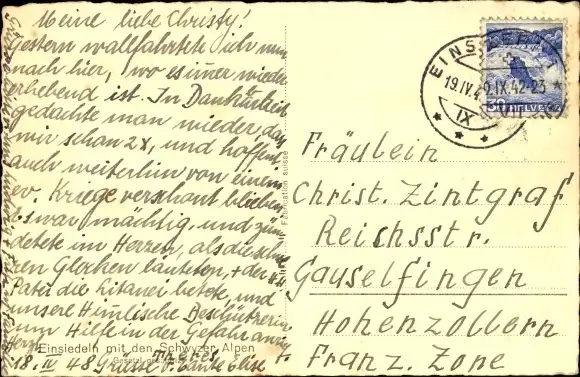 Meine liebe Christy!
Gestern wallfahrtete ich nun
nach hier, wo es immer wieder
erhebend ist. In Dankbarkeit
gedachte man wieder, daß
wir schon 2x, und hoffentl.
auch weiterhin von einem
ev. Kriege verschont blieben.
Es war mächtig, und zün
detete im Herzen, als die schwe
ren Glocken läuteten, + der
Pater die Litanei betete, und
unsere Himmlische Beschützerin
um Hilfe in der Gefahr
Herzl.
18. IV 48 Grüße v. Tante Elise
Einsiedeln mit den Schwyzer Alpen
Fabrication suisse
EINSIEDELN
IX
30 HELVETIA
Fräulein
Christ. Zintgraf
Reichsstr.
Gauselfingen
Hohenzollern
Franz. Zone